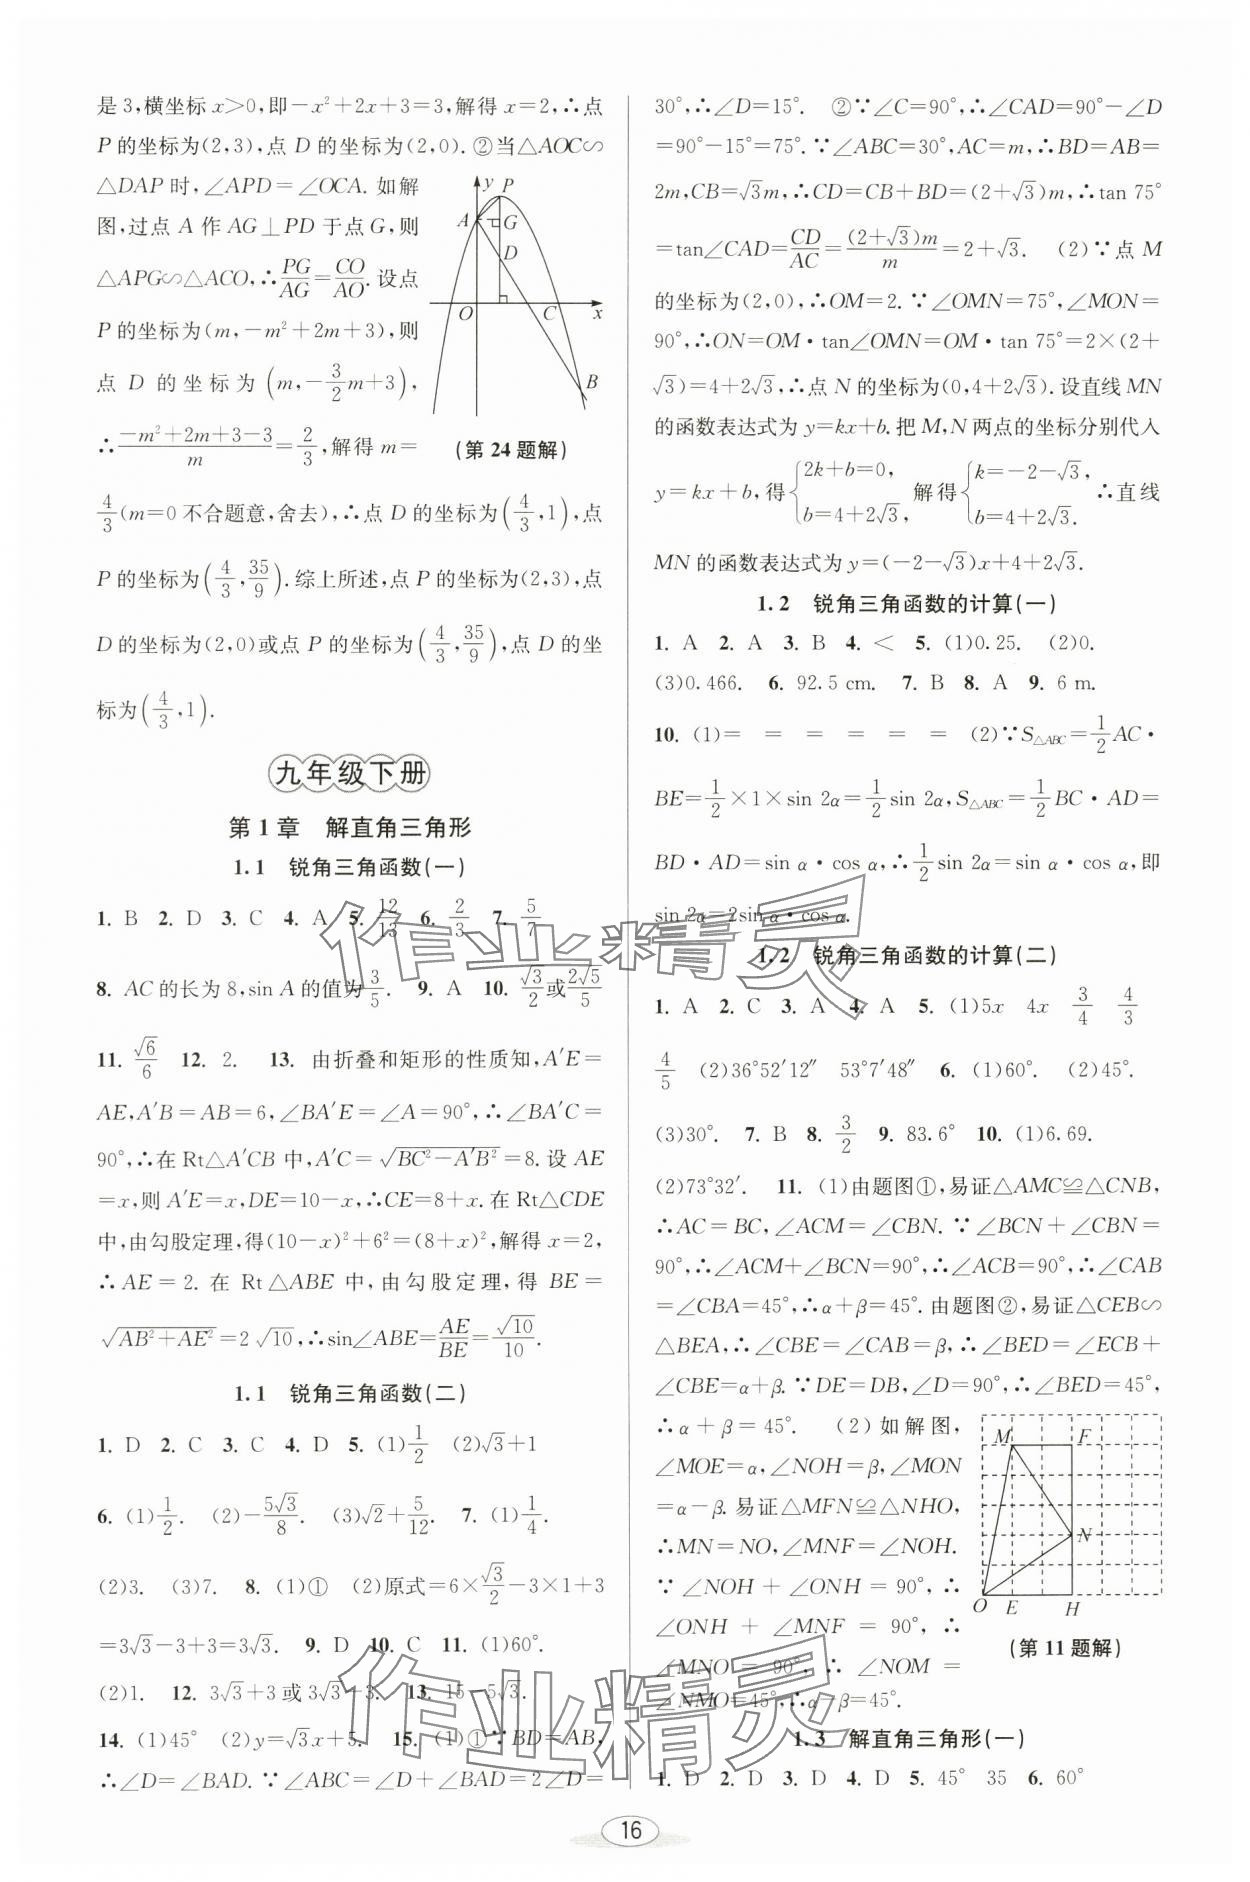 是3,横坐标x>0,即-x²+2x+3=3,解得x=2,∴点
P的坐标为(2,3),点D的坐标为(2,0).②当△AOC∽
△DAP时,∠APD=∠OCA.如解
图,过点A作AG⊥PD于点G,则
△APG∽△ACO,∴PG/AG=CO/AO.设点
P的坐标为(m,-m²+2m+3),则
点D的坐标为(m,-3/2m+3),
∴(-m²+2m+3-3)/m=2/3,解得m=
y P A G D O C x B
(第24题解)
4/3(m=0不合题意,舍去),∴点D的坐标为(4/3,1),点
P的坐标为(4/3,35/9).综上所述,点P的坐标为(2,3),点
D的坐标为(2,0)或点P的坐标为(4/3,35/9),点D的坐
标为(4/3,1).
九年级下册
第1章 解直角三角形
1.1 锐角三角函数(一)
1. B 2. D 3. C 4. A 5. 12/13 6. 2/3 7. 5/7
8. AC的长为8,sin A的值为3/5. 9. A 10. √3/2或2√5/5
11. √6/6 12. 2. 13. 由折叠和矩形的性质知,A′E=
AE,A′B=AB=6,∠BA′E=∠A=90°,∴∠BA′C=
90°,∴在Rt△A′CB中,A′C=√(BC²-A′B²)=8.设AE
=x,则A′E=x,DE=10-x,∴CE=8+x.在Rt△CDE
中,由勾股定理,得(10-x)²+6²=(8+x)²,解得x=2,
∴AE=2.在Rt△ABE中,由勾股定理,得BE=
√(AB²+AE²)=2√10,∴sin∠ABE=AE/BE=√10/10.
1.1 锐角三角函数(二)
1. D 2. C 3. C 4. D 5. (1)1/2 (2)√3+1
6. (1)1/2. (2)-5√3/8. (3)√2+5/12. 7. (1)1/4.
(2)3. (3)7. 8. (1)① (2)原式=6×√3/2-3×1+3
=3√3-3+3=3√3. 9. D 10. C 11. (1)60°.
(2)1. 12. 3√3+3或3√3-3. 13. 15-5√3.
14. (1)45° (2)y=√3x+5. 15. (1)①∵BD=AB,
∴∠D=∠BAD.∵∠ABC=∠D+∠BAD=2∠D=
30°,∴∠D=15°. ②∵∠C=90°,∴∠CAD=90°-∠D
=90°-15°=75°.∵∠ABC=30°,AC=m,∴BD=AB=
2m,CB=√3m,∴CD=CB+BD=(2+√3)m,∴tan 75°
=tan∠CAD=CD/AC=(2+√3)m/m=2+√3. (2)∵点M
的坐标为(2,0),∴OM=2.∵∠OMN=75°,∠MON=
90°,∴ON=OM·tan∠OMN=OM·tan 75°=2×(2+
√3)=4+2√3,∴点N的坐标为(0,4+2√3).设直线MN
的函数表达式为y=kx+b.把M,N两点的坐标分别代入
y=kx+b,得{2k+b=0, b=4+2√3, 解得{k=-2-√3, b=4+2√3. ∴直线
MN的函数表达式为y=(-2-√3)x+4+2√3.
1.2 锐角三角函数的计算(一)
1. A 2. A 3. B 4. < 5. (1)0.25. (2)0.
(3)0.466. 6. 92.5 cm. 7. B 8. A 9. 6 m.
10. (1)= = = = = = (2)∵S△ABC=1/2AC·
BE=1/2×1×sin 2α=1/2sin 2α,S△ABC=1/2BC·AD=
BD·AD=sin α·cos α,∴1/2sin 2α=sin α·cos α,即
sin 2α=2sin α·cos α.
1.2 锐角三角函数的计算(二)
1. A 2. C 3. A 4. A 5. (1)5x 4x 3/4 4/3
4/5 (2)36°52′12″ 53°7′48″ 6. (1)60°. (2)45°.
(3)30°. 7. B 8. 3/2 9. 83.6° 10. (1)6.69.
(2)73°32′. 11. (1)由题图①,易证△AMC≌△CNB,
∴AC=BC,∠ACM=∠CBN.∵∠BCN+∠CBN=
90°,∴∠ACM+∠BCN=90°,∴∠ACB=90°,∴∠CAB
=∠CBA=45°,∴α+β=45°.由题图②,易证△CEB∽
△BEA,∴∠CBE=∠CAB=β,∴∠BED=∠ECB+
∠CBE=α+β.∵DE=DB,∠D=90°,∴∠BED=45°,
∴α+β=45°. (2)如解图,
∠MOE=α,∠NOH=β,∠MON
=α-β.易证△MFN≌△NHO,
∴MN=NO,∠MNF=∠NOH.
∵∠NOH+∠ONH=90°,∴
∠ONH+∠MNF=90°,∴
∠MNO=90°,∴∠NOM=
∠NMO=45°,∴α-β=45°.
M F N O E H
(第11题解)
1.3 解直角三角形(一)
1. D 2. D 3. D 4. D 5. 45° 35 6. 60°
16
作业精灵
作业精灵